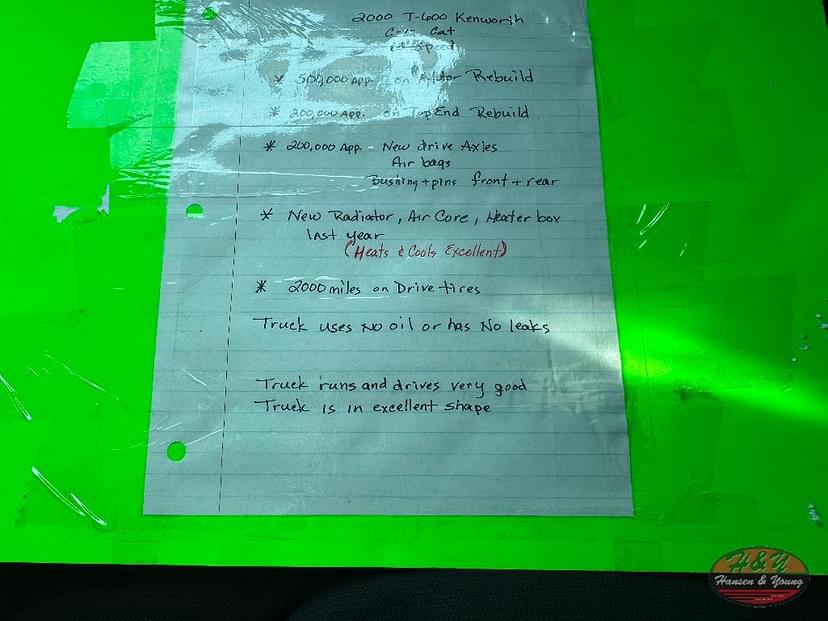 2000 T-600 Kenworth
Cat
Speed
* 500,000 App. on Motor Rebuild
* 200,000 App. on Top End Rebuild
* 200,000 App. - New drive Axles
Air bags
Bushing + pins front + rear
* New Radiator, Air Core, Heater box
last year
(Heats & Cools Excellent)
* 2000 miles on Drive tires
Truck uses No oil or has No leaks
Truck runs and drives very good
Truck is in excellent shape
H&Y
Hansen & Young